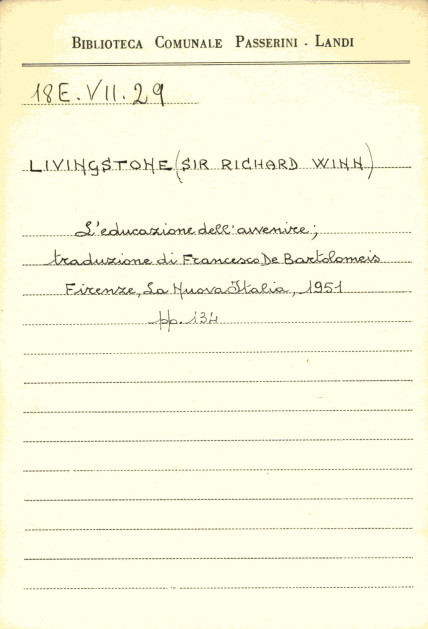 BIBLIOTECA COMUNALE PASSERINI - LANDI
18E.VII.29
LIVINGSTONE (SIR RICHARD WINN)
L'educazione dell'avvenire;
traduzione di Francesco De Bartolomeis
Firenze, La Nuova Italia, 1951
pp. 134